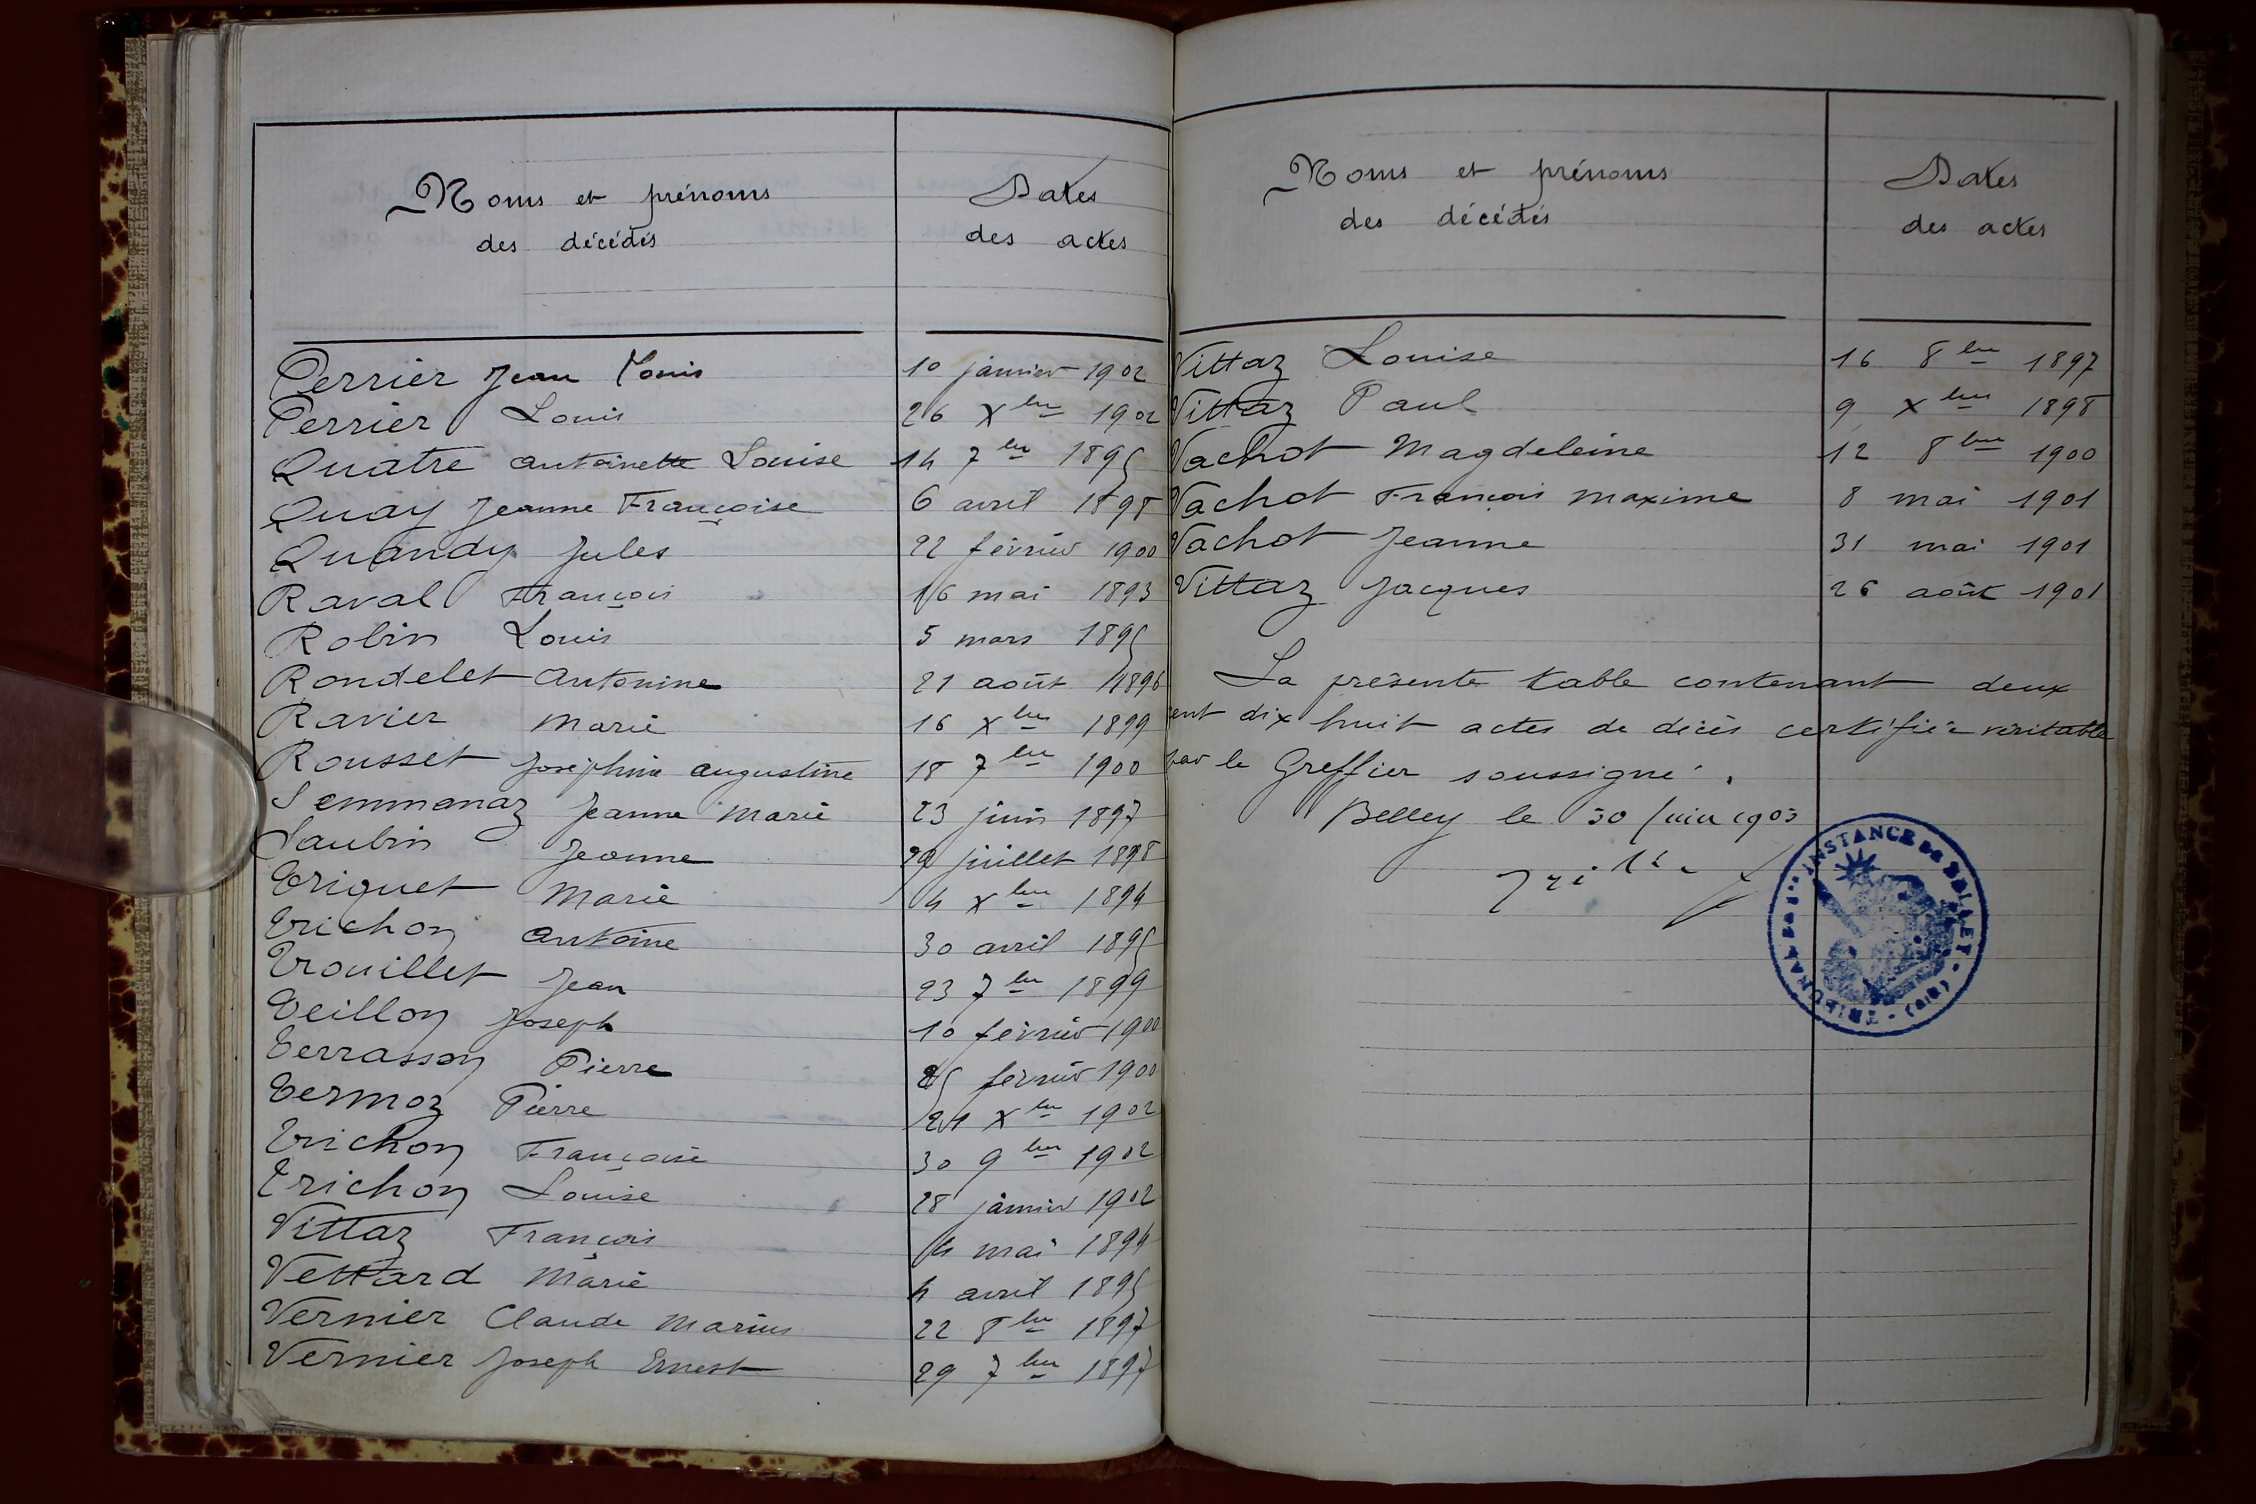 Noms et prénoms
des décédés
Dates
des actes
Perrier Jean Louis 10 janvier 1902
Perrier Louis 26 Xbre 1902
Quatre Antoinette Louise 14 7bre 1895
Quay Jeanne Françoise 6 avril 1898
Quandy Jules 22 février 1900
Raval François 16 mai 1893
Robin Louis 5 mars 1895
Rondelet Antonine 21 août 1896
Ravier Marie 16 Xbre 1899
Rousset Joséphine Augustine 18 7bre 1900
Semmanaz Jeanne Marie 23 juin 1897
Saubin Jeanne 29 juillet 1898
Triquet Marie 4 Xbre 1894
Trichon Antoine 30 avril 1895
Trouillet Jean 23 7bre 1899
Teillon Joseph 10 février 1900
Terrasson Pierre 25 février 1900
Termoz Pierre 21 Xbre 1902
Trichon Françoise 30 9bre 1902
Trichon Louise 28 janvier 1902
Vittaz François 4 mai 1894
Vettard Marie 4 avril 1895
Vernier Claude Marius 22 8bre 1897
Vernier Joseph Ernest 29 7bre 1897
Noms et prénoms
des décédés
Dates
des actes
Vittaz Louise 16 8bre 1897
Vittaz Paul 9 Xbre 1898
Vachot Magdeleine 12 8bre 1900
Vachot François Maxime 8 mai 1901
Vachot Jeanne 31 mai 1901
Vittaz Jacques 26 août 1901
La présente table contenant deux
cent dix huit actes de décès certifiée véritable
par le Greffier soussigné.
Belley le 30 juin 1903
TRIBUNAL DE 1re INSTANCE DE BELLEY - (AIN) -